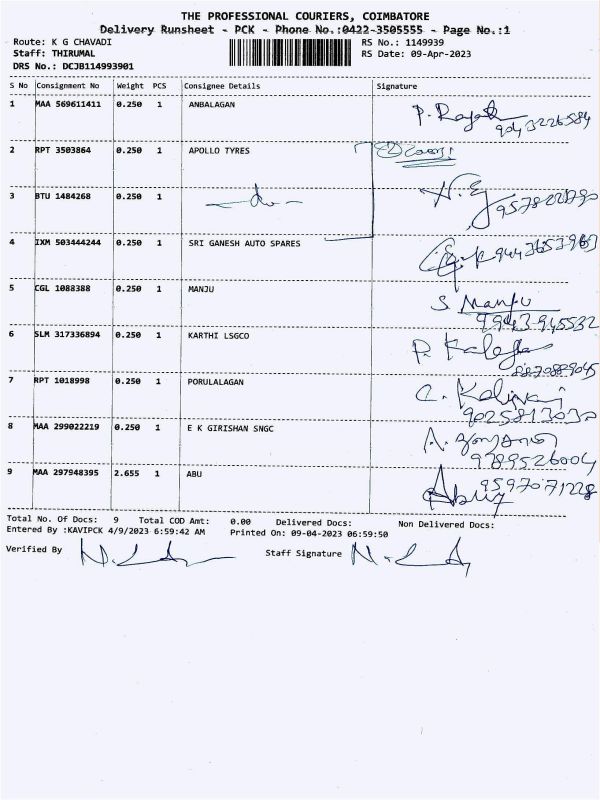 THE PROFESSIONAL COURIERS, COIMBATORE
Delivery Runsheet - PCK - Phone No.:0422-3505555 - Page No.:1
Route: K G CHAVADI RS No.: 1149939
Staff: THIRUMAL RS Date: 09-Apr-2023
DRS No.: DCJB114993901
S No Consignment No Weight PCS Consignee Details Signature
1 MAA 569611411 0.250 1 ANBALAGAN
2 RPT 3503864 0.250 1 APOLLO TYRES
3 BTU 1484268 0.250 1
4 IXM 503444244 0.250 1 SRI GANESH AUTO SPARES
5 CGL 1088388 0.250 1 MANJU S. Manju
9943945532
6 SLM 317336894 0.250 1 KARTHI LSGCO
7 RPT 1018998 0.250 1 PORULALAGAN
9025813030
8 MAA 299022219 0.250 1 E K GIRISHAN SNGC
9789526004
9 MAA 297948395 2.655 1 ABU 9597071228
Total No. Of Docs: 9 Total COD Amt: 0.00 Delivered Docs: Non Delivered Docs:
Entered By :KAVIPCK 4/9/2023 6:59:42 AM Printed On: 09-04-2023 06:59:50
Verified By Staff Signature